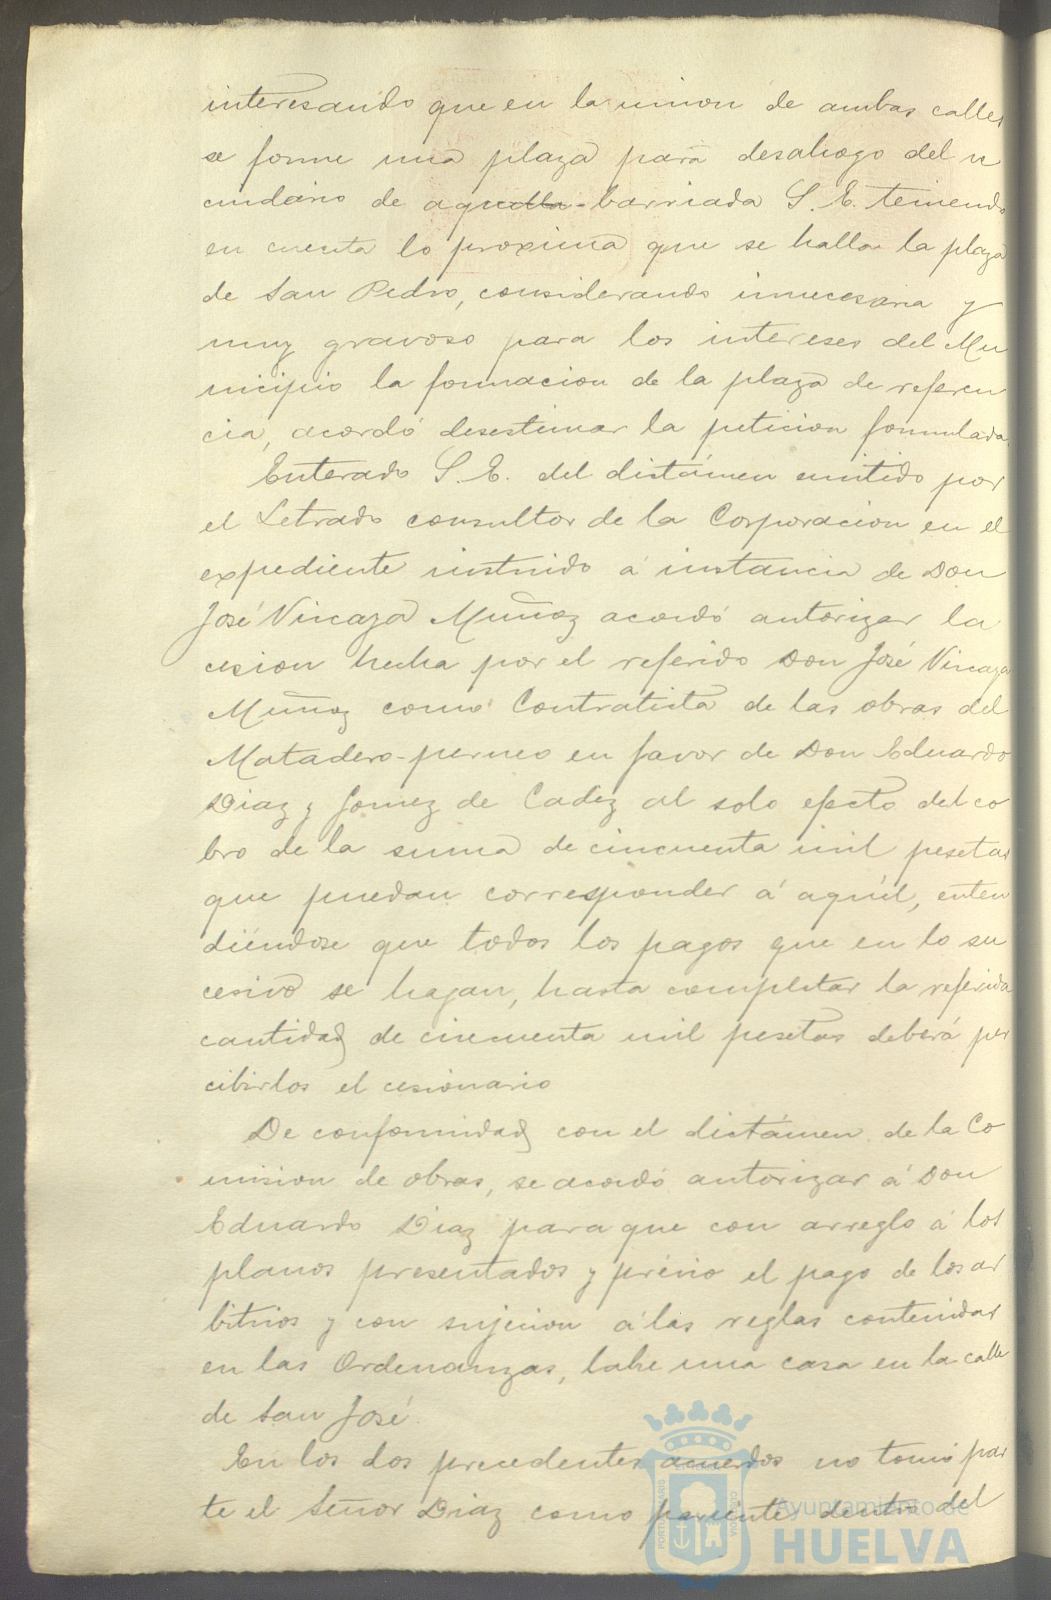 interesando que en la union de ambas calles
se forme una plaza para desahogo del ve
cindario de aquella barriada S. E. teniendo
en cuenta lo proxima que se halla la plaza
de San Pedro, considerando innecesaria y
muy gravoso para los intereses del Mu
nicipio la formacion de la plaza de referen
cia, acordó desestimar la peticion formulada.
Enterado S. E. del dictámen emitido por
el Letrado consultor de la Corporacion en el
expediente instruido á instancia de Don
José Vizcaya Muñoz acordó autorizar la
cesion hecha por el referido Don José Vizcaya
Muñoz como Contratista de las obras del
Matadero-perneo en favor de Don Eduardo
Diaz y Gomez de Cadiz al solo efecto del co
bro de la suma de cincuenta mil pesetas
que puedan corresponder á aquél, enten
diéndose que todos los pagos que en lo su
cesivo se hagan, hasta completar la referida
cantidad de cincuenta mil pesetas deberá per
cibirlos el cesionario
De conformidad con el dictámen de la Co
mision de obras, se acordó autorizar á Don
Eduardo Diaz para que con arreglo á los
planos presentados y prévio el pago de los ar
bitrios y con sujecion á las reglas contenidas
en las Ordenanzas, labre una casa en la calle
de San José.
En los dos precedentes acuerdos no tomó par
te el Señor Diaz como pariente dentro del
Ayuntamiento de
HUELVA